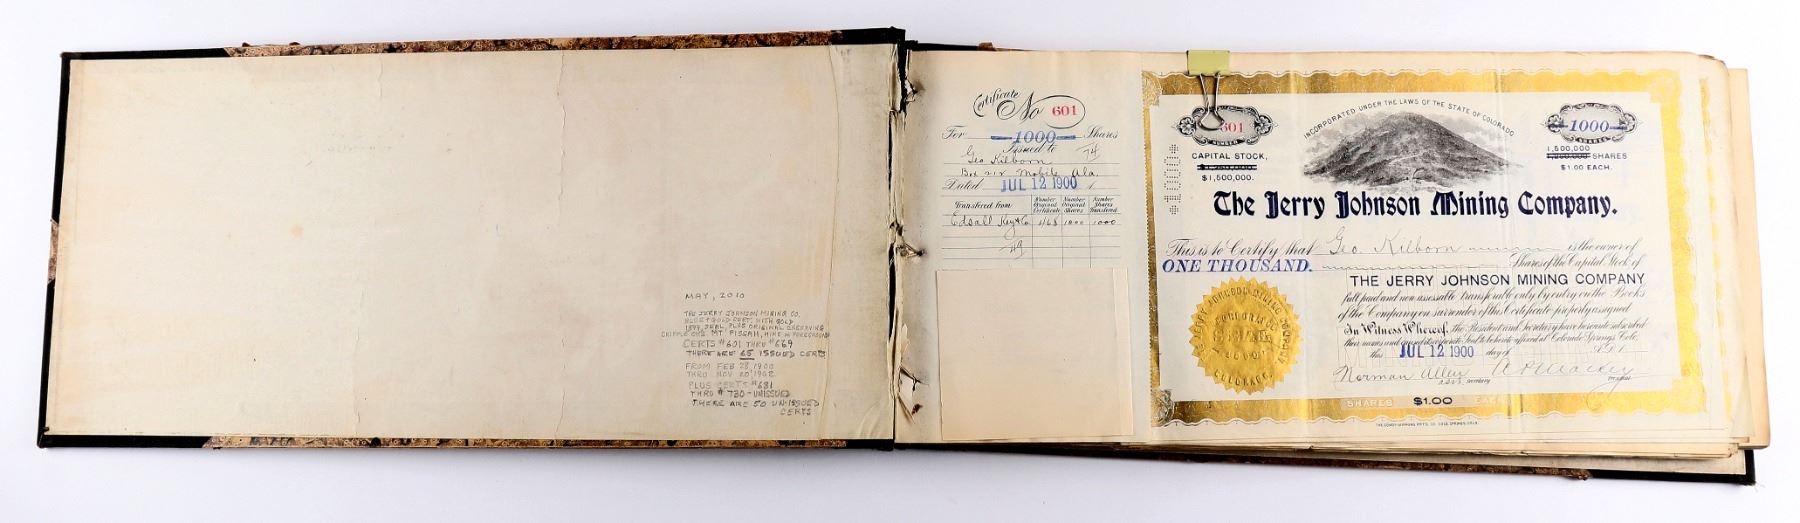 MAY, 2010
THE JERRY JOHNSON MINING CO.
GOLD SEAL, PLUS ORIGINAL ENGRAVING
CRIPPLE CRK. MT PISGAH, MINE IN FOREGROUND
CERTS #601 THRU #669
THERE ARE 65 ISSUED CERTS
FROM FEB 28, 1900
THRU NOV 20 1902
PLUS CERTS #681
THRU #730 - UNISSUED
THERE ARE 50 UN-ISSUED
CERTS
Certificate No 601
For 1000 Shares
Issued to
Geo Kilborn
Box 212 Mobile Ala.
Dated JUL 12 1900
Transferred from Number Original Certificate Number Original Shares Number Shares Transferred
Edsall Key & Co 468 1000 1000
601
NUMBER
INCORPORATED UNDER THE LAWS OF THE STATE OF COLORADO
1000
SHARES
CAPITAL STOCK,
$1,500,000.
1,500,000
1,250,000 SHARES
$1.00 EACH.
1000
The Jerry Johnson Mining Company.
This is to Certify that Geo. Kilborn is the owner of
ONE THOUSAND. Shares of the Capital Stock of
THE JERRY JOHNSON MINING COMPANY
full paid and non assessable transferable only by entry on the Books
of the Company on surrender of this Certificate properly assigned
In Witness Whereof, the President and Secretary have hereunto subscribed
their names and caused its corporate Seal to be hereto affixed at Colorado Springs Colo.
this JUL 12 1900 day of
Norman Allen Asst. Secretary
THE JERRY JOHNSON MINING COMPANY
SEAL
COLORADO.
SHARES $1.00 EACH